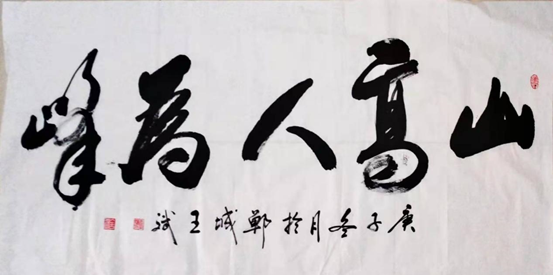 山高人為峰
庚子冬月於鄭城王